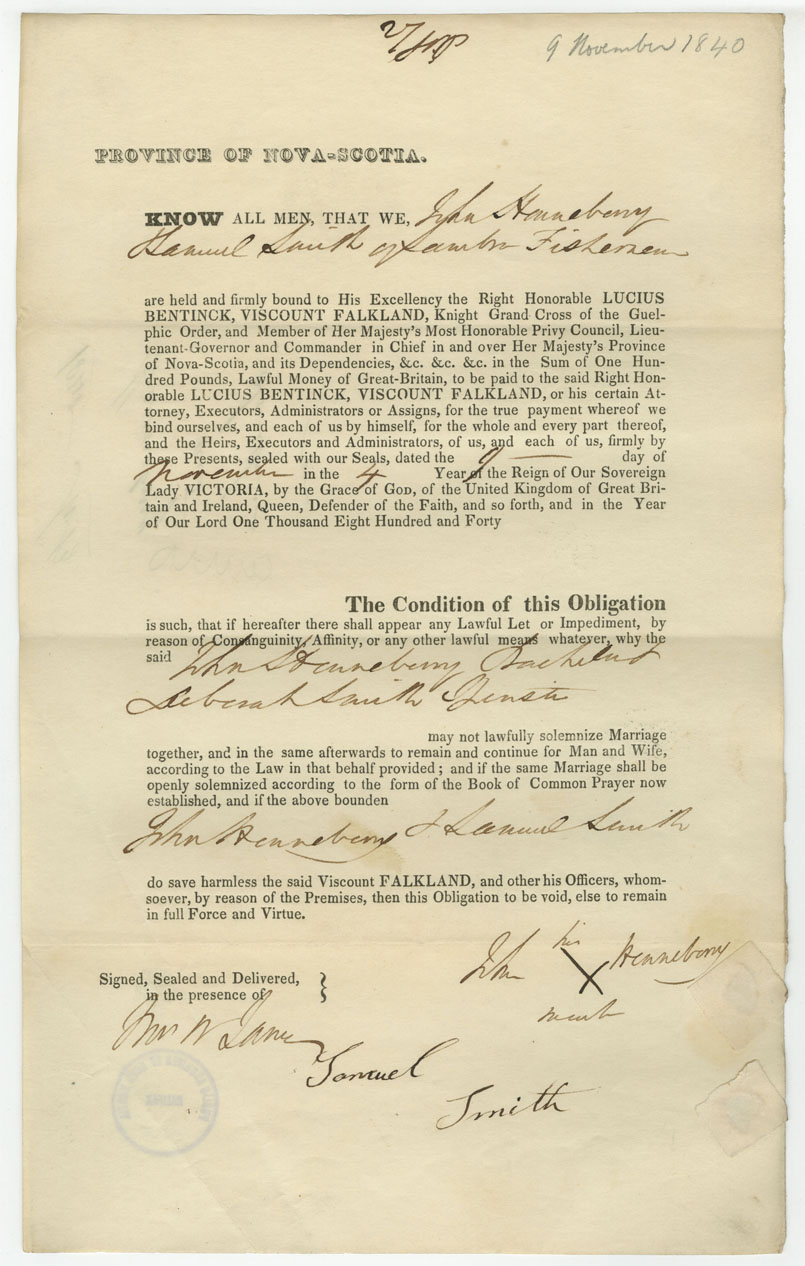 9 November 1840
PROVINCE OF NOVA-SCOTIA.
KNOW ALL MEN, THAT WE, John Henneberry
Samuel Smith of Sambro Fishermen
are held and firmly bound to His Excellency the Right Honorable LUCIUS
BENTINCK, VISCOUNT FALKLAND, Knight Grand Cross of the Guel-
phic Order, and Member of Her Majesty's Most Honorable Privy Council, Lieu-
tenant-Governor and Commander in Chief in and over Her Majesty's Province
of Nova-Scotia, and its Dependencies, &c. &c. &c. in the Sum of One Hun-
dred Pounds, Lawful Money of Great-Britain, to be paid to the said Right Hon-
orable LUCIUS BENTINCK, VISCOUNT FALKLAND, or his certain At-
torney, Executors, Administrators or Assigns, for the true payment whereof we
bind ourselves, and each of us by himself, for the whole and every part thereof,
and the Heirs, Executors and Administrators, of us, and each of us, firmly by
these Presents, sealed with our Seals, dated the 9 day of
November in the 4 Year of the Reign of Our Sovereign
Lady VICTORIA, by the Grace of GOD, of the United Kingdom of Great Bri-
tain and Ireland, Queen, Defender of the Faith, and so forth, and in the Year
of Our Lord One Thousand Eight Hundred and Forty
The Condition of this Obligation
is such, that if hereafter there shall appear any Lawful Let or Impediment, by
reason of Consanguinity, Affinity, or any other lawful means whatever, why the
said John Henneberry Bachelor &
Deborah Smith Spinster
may not lawfully solemnize Marriage
together, and in the same afterwards to remain and continue for Man and Wife,
according to the Law in that behalf provided; and if the same Marriage shall be
openly solemnized according to the form of the Book of Common Prayer now
established, and if the above bounden
John Henneberry & Samuel Smith
do save harmless the said Viscount FALKLAND, and other his Officers, whom-
soever, by reason of the Premises, then this Obligation to be void, else to remain
in full Force and Virtue.
John his X mark Henneberry
Signed, Sealed and Delivered,
in the presence of
Samuel
Smith